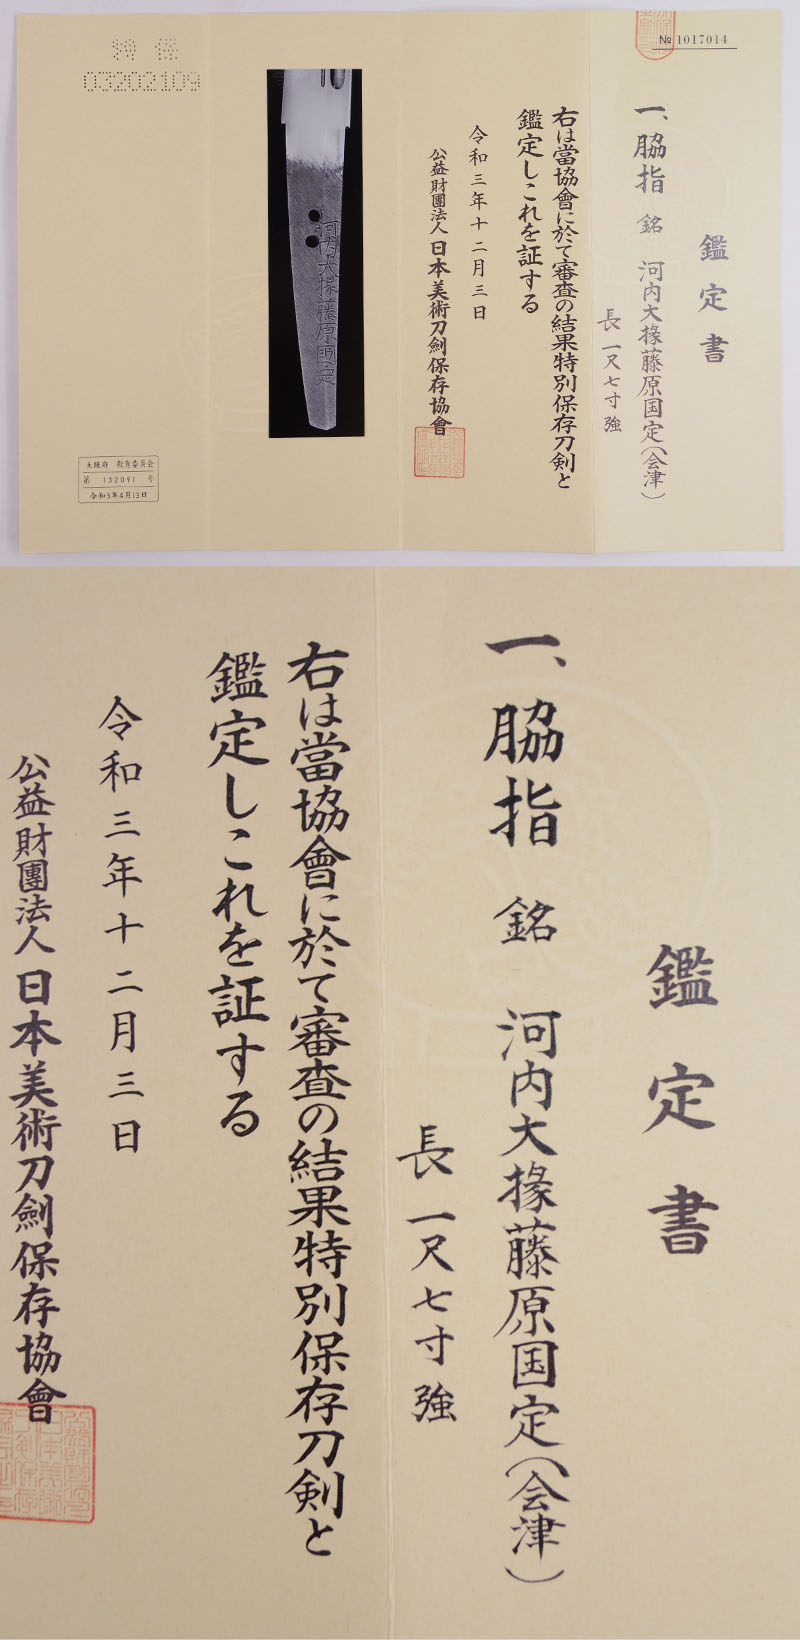 № 1017014
鑑定書
一、脇指 銘 河内大掾藤原国定(会津)
長一尺七寸強
右は當協會に於て審査の結果特別保存刀剣と
鑑定しこれを証する
令和三年十二月三日
公益財團法人日本美術刀劍保存協會
河内大掾藤原国定
特保
03202109
大阪府 教育委員会
第 132091 号
令和3年4月13日
鑑定書
一、脇指 銘 河内大掾藤原国定(会津)
長一尺七寸強
右は當協會に於て審査の結果特別保存刀剣と
鑑定しこれを証する
令和三年十二月三日
公益財團法人日本美術刀劍保存協會